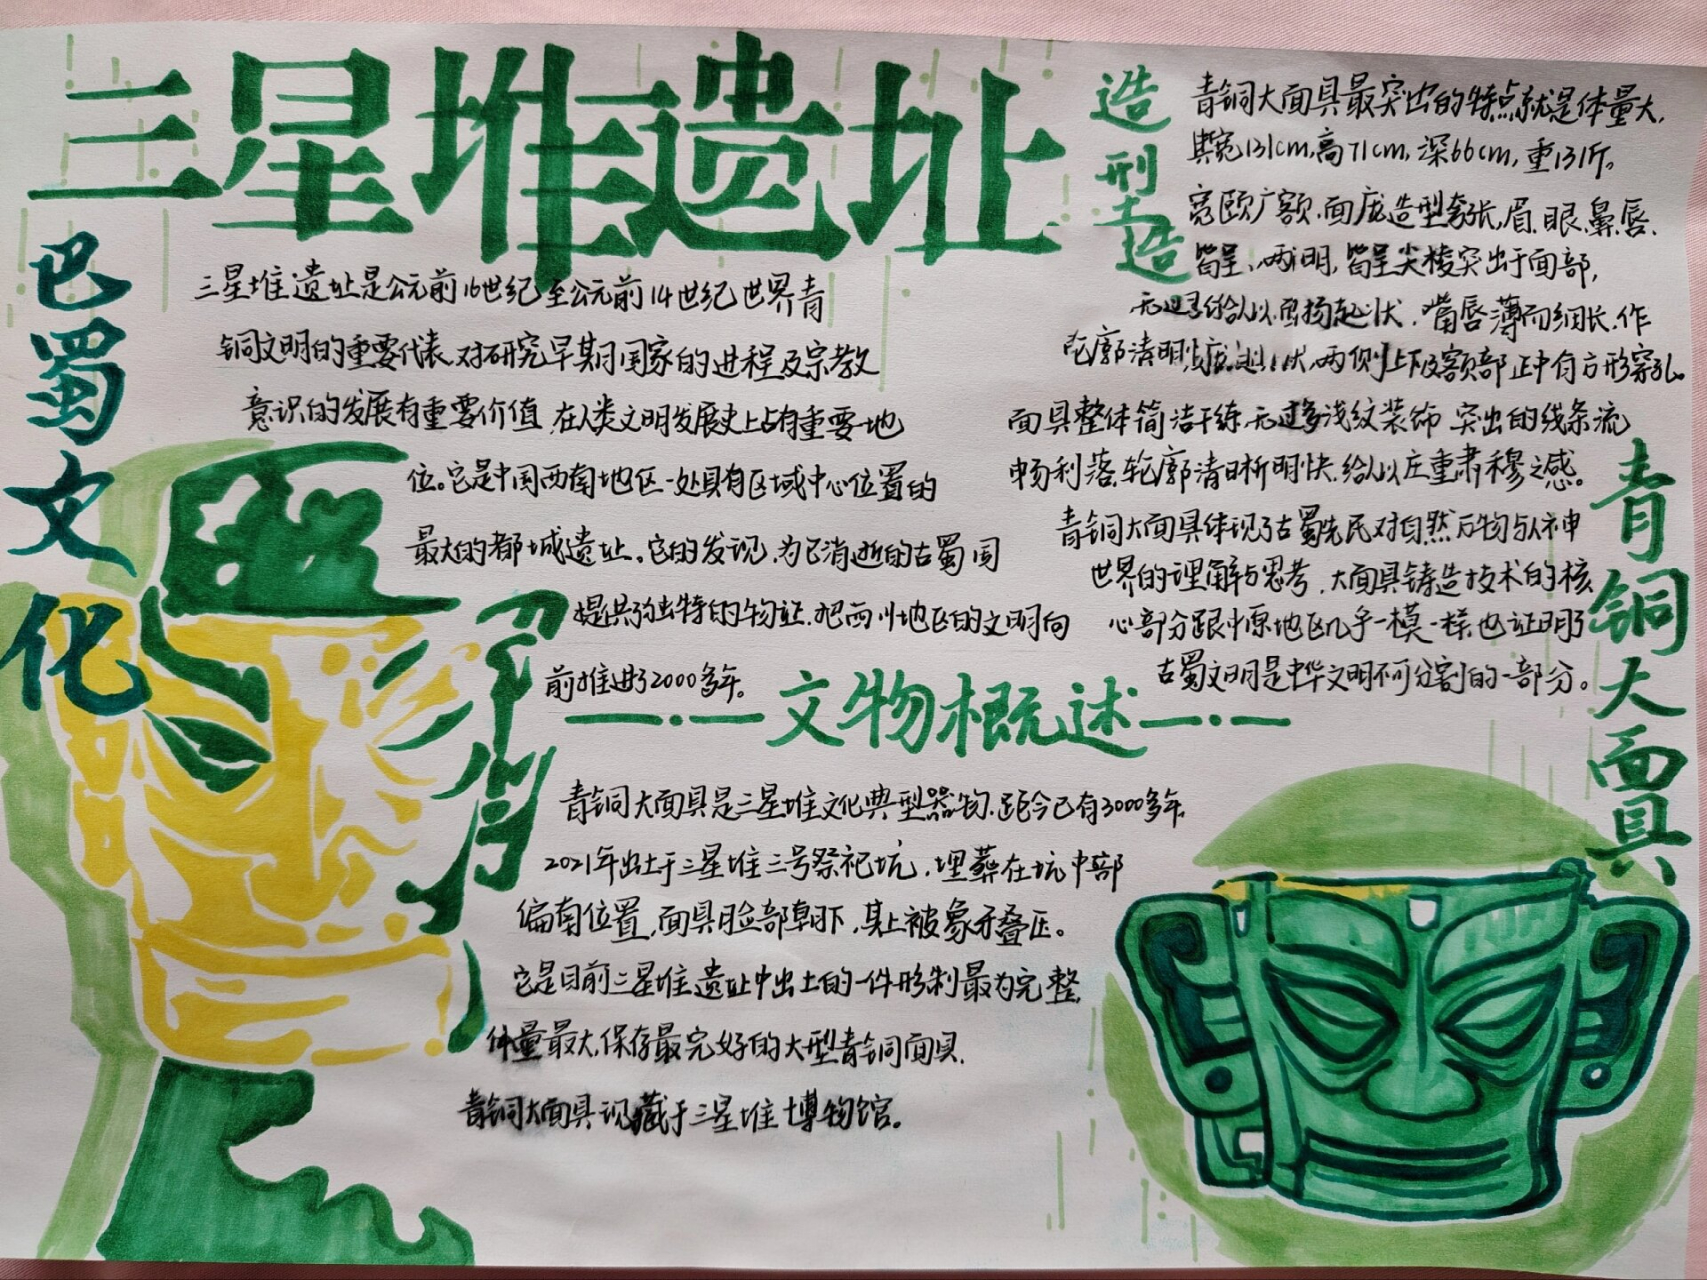 三星堆遗址
巴蜀文化
三星堆遗址是公元前16世纪至公元前14世纪世界青
铜文明的重要代表,对研究早期国家的进程及宗教
意识的发展有重要价值,在人类文明发展史上占有重要地
位。它是中国西南地区一处具有区域中心位置的
最大的都城遗址。它的发现,为已消逝的古蜀国
提供了独特的物证,把四川地区的文明向
前推进了2000多年。
造型
造
青铜大面具最突出的特点就是体量大,
其宽131cm,高71cm,深66cm,重131斤。
宽颐广额,面庞造型夸张,眉、眼、鼻、唇、
皆呈尖棱突出于面部,
嘴唇薄而细长,作
轮廓清明 两侧上下及额部正中有方形穿孔。
面具整体简洁干练,无过多浅纹装饰,突出的线条流
畅利落,轮廓清晰明快,给人以庄重肃穆之感。
青铜大面具体现了古蜀先民对自然万物与人神
世界的理解与思考,大面具铸造技术的核
心部分跟中原地区几乎一模一样,也证明了
古蜀文明是中华文明不可分割的一部分。
青铜大面具
文物概述
青铜大面具是三星堆文化典型器物,距今已有3000多年,
2021年出土于三星堆三号祭祀坑,埋葬在坑中部
偏南位置,面具脸部朝下,其上被象牙叠压。
它是目前三星堆遗址中出土的一件形制最为完整,
体量最大,保存最完好的大型青铜面具,
青铜大面具现藏于三星堆博物馆。